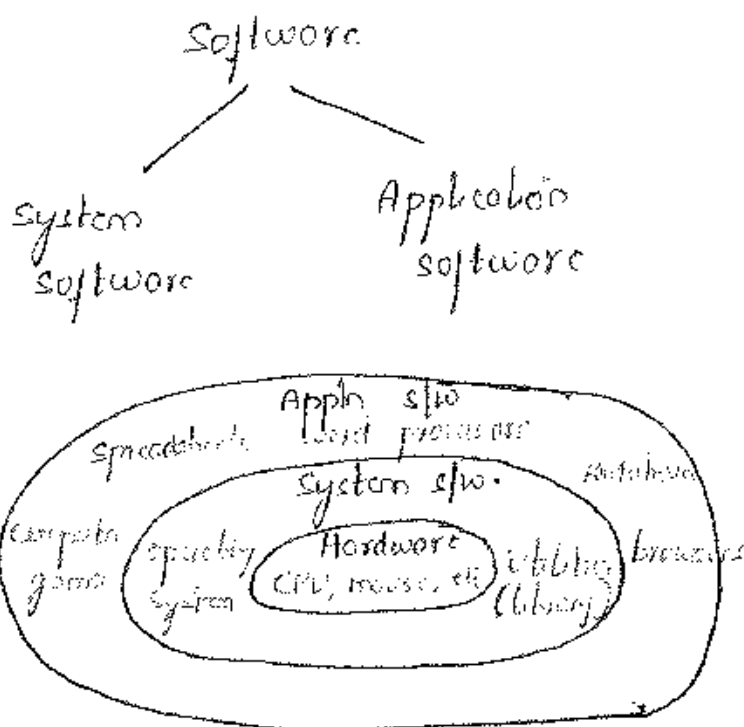 Software
System
software
Application
software
Appln s/w
Spreadsheets word processors
Database
System s/w.
Computer
games
operating
system
Hardware
CPU, mouse, etc
utilities
(library)
browsers